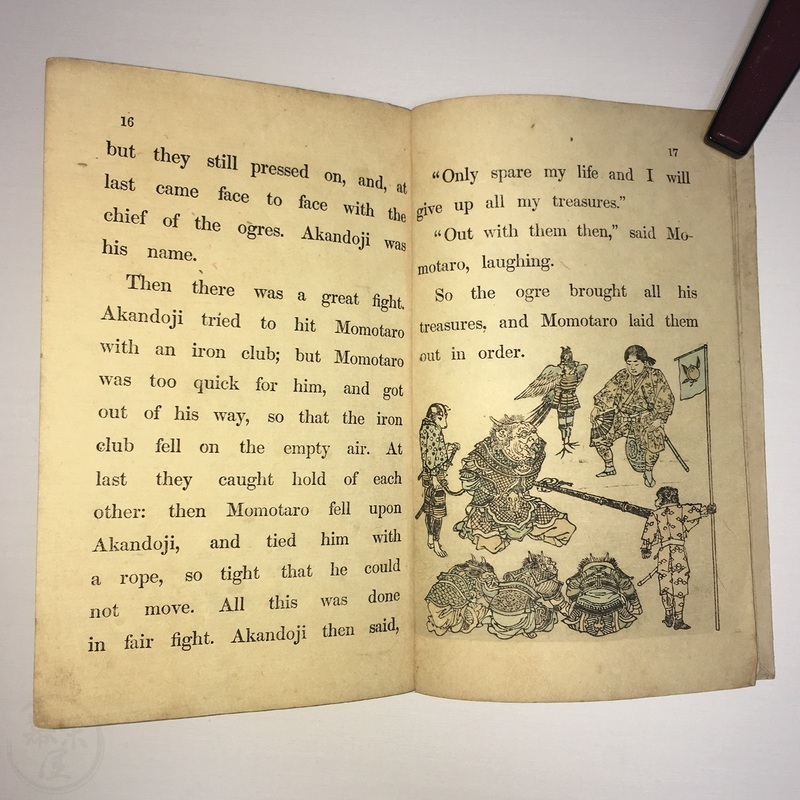 16
but they still pressed on, and, at
last came face to face with the
chief of the ogres. Akandoji was
his name.
Then there was a great fight.
Akandoji tried to hit Momotaro
with an iron club; but Momotaro
was too quick for him, and got
out of his way, so that the iron
club fell on the empty air. At
last they caught hold of each
other: then Momotaro fell upon
Akandoji, and tied him with
a rope, so tight that he could
not move. All this was done
in fair fight. Akandoji then said,
17
“Only spare my life and I will
give up all my treasures.”
“Out with them then,” said Mo-
motaro, laughing.
So the ogre brought all his
treasures, and Momotaro laid them
out in order.